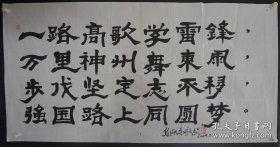 一路高歌学雷鋒，
万里神州舞東風，
步伐坚定志不移，
强国路上同圆梦。